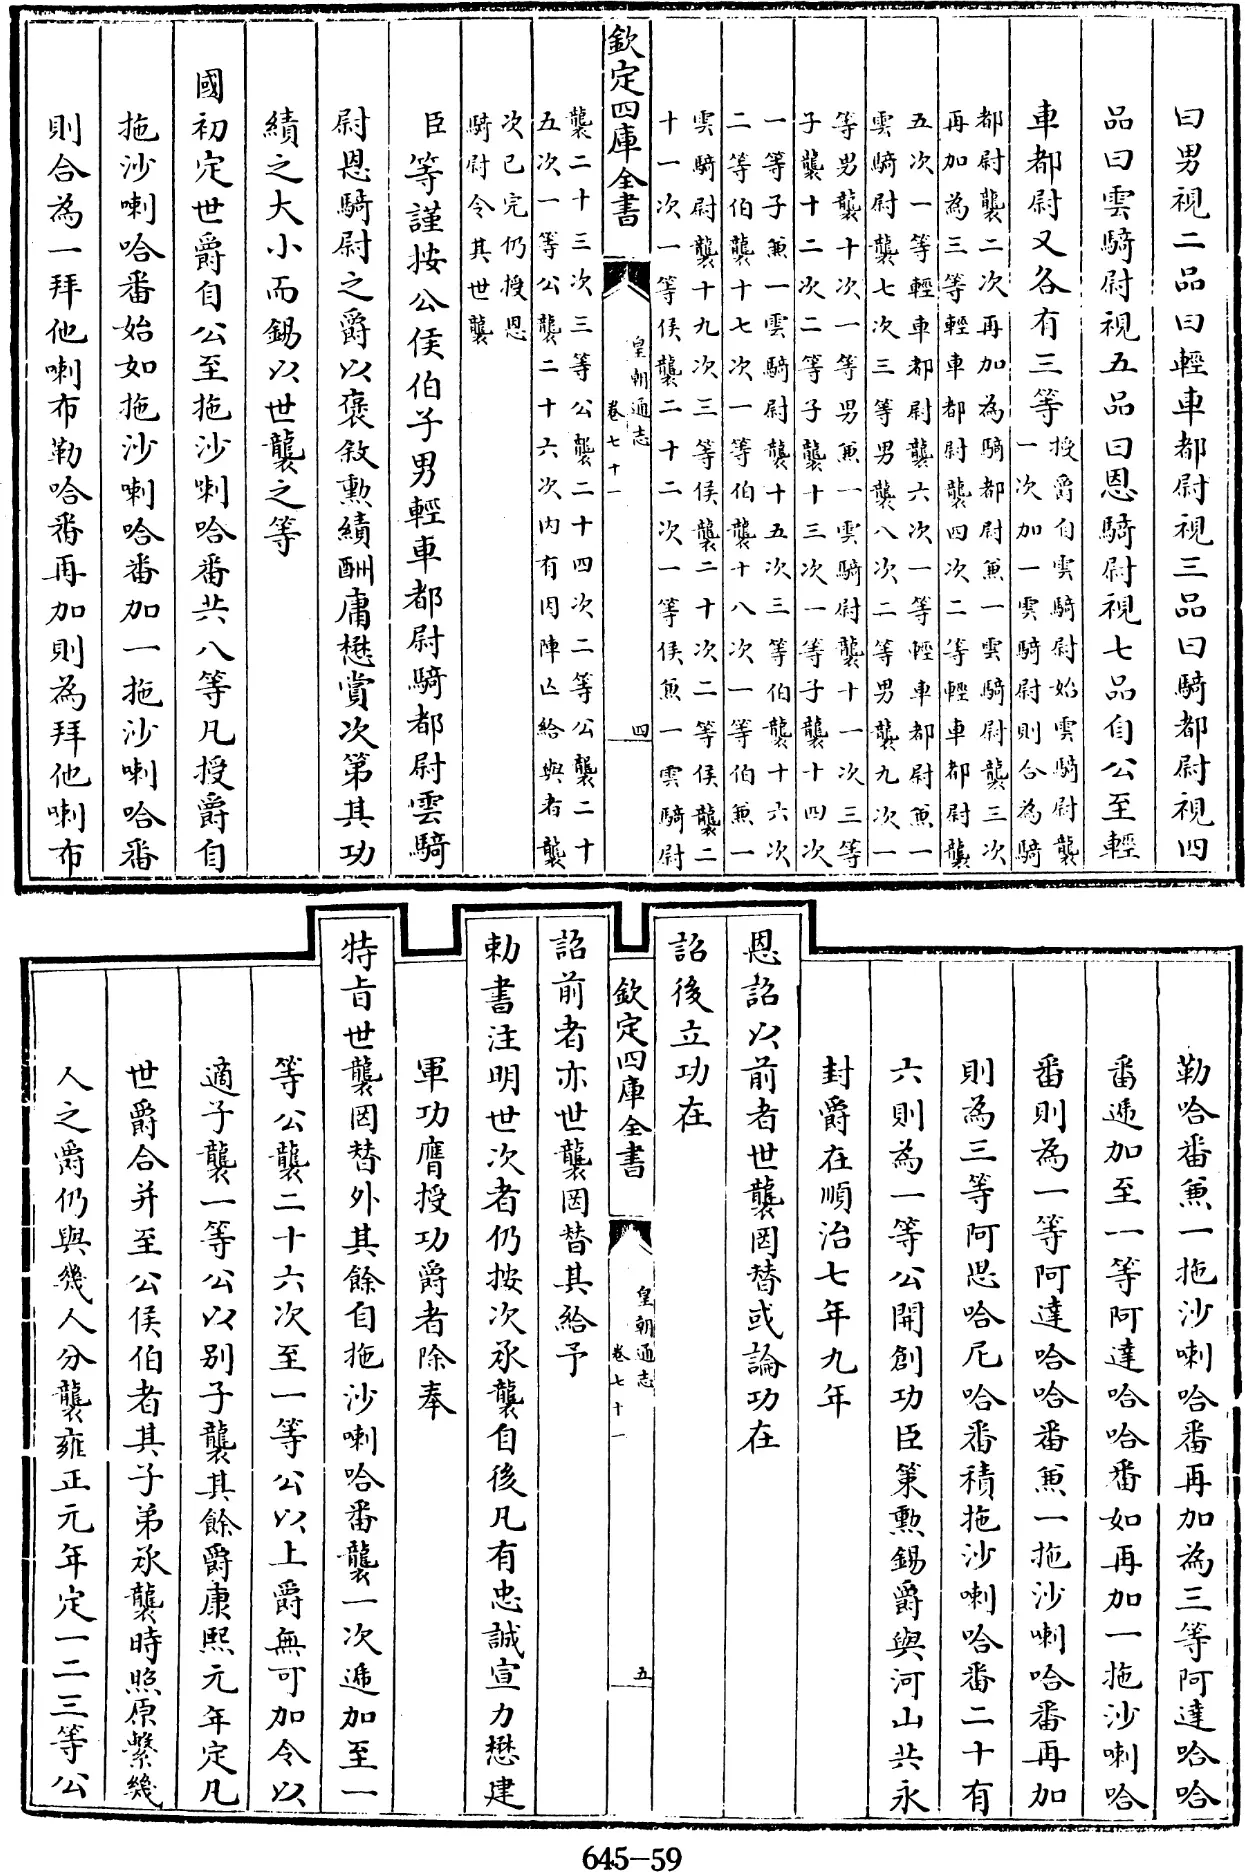 曰男視二品曰輕車都尉視三品曰騎都尉視四
品曰雲騎尉視五品曰恩騎尉視七品自公至輕
車都尉又各有三等
授爵自雲騎尉始雲騎尉襲
一次加一雲騎尉則合為騎
都尉襲二次再加為騎都尉兼一雲騎尉襲三次
再加為三等輕車都尉襲四次二等輕車都尉襲
五次一等輕車都尉襲六次一等輕車都尉兼一
雲騎尉襲七次三等男襲八次二等男襲九次一
等男襲十次一等男兼一雲騎尉襲十一次三等
子襲十二次二等子襲十三次一等子襲十四次
一等子兼一雲騎尉襲十五次三等伯襲十六次
二等伯襲十七次一等伯襲十八次一等伯兼一
雲騎尉襲十九次三等侯襲二十次二等侯襲二
十一次一等侯襲二十二次一等侯兼一雲騎尉
欽定四庫全書
皇朝通志
卷七十一
四
襲二十三次三等公襲二十四次二等公襲二十
五次一等公襲二十六次內有因陣亡給與者襲
次已完仍授恩
騎尉令其世襲
臣等謹按公侯伯子男輕車都尉騎都尉雲騎
尉恩騎尉之爵以襃敘勲績酬庸懋賞次第其功
績之大小而錫以世襲之等
國初定世爵自公至拖沙喇哈番共八等凡授爵自
拖沙喇哈番始如拖沙喇哈番加一拖沙喇哈番
則合為一拜他喇布勒哈番再加則為拜他喇布
勒哈番兼一拖沙喇哈番再加為三等阿達哈哈
番遞加至一等阿達哈哈番如再加一拖沙喇哈
番則為一等阿達哈哈番兼一拖沙喇哈番再加
則為三等阿思哈尼哈番積拖沙喇哈番二十有
六則為一等公開創功臣策勲錫爵與河山共永
封爵在順治七年九年
恩詔以前者世襲罔替或論功在
詔後立功在
欽定四庫全書
皇朝通志
卷七十一
五
詔前者亦世襲罔替其給予
勅書注明世次者仍按次承襲自後凡有忠誠宣力懋建
軍功膺授功爵者除奉
特旨世襲罔替外其餘自拖沙喇哈番襲一次遞加至一
等公襲二十六次至一等公以上爵無可加令以
適子襲一等公以別子襲其餘爵康熙元年定凡
世爵合并至公侯伯者其子弟承襲時照原繫幾
人之爵仍與幾人分襲雍正元年定一二三等公
645-59